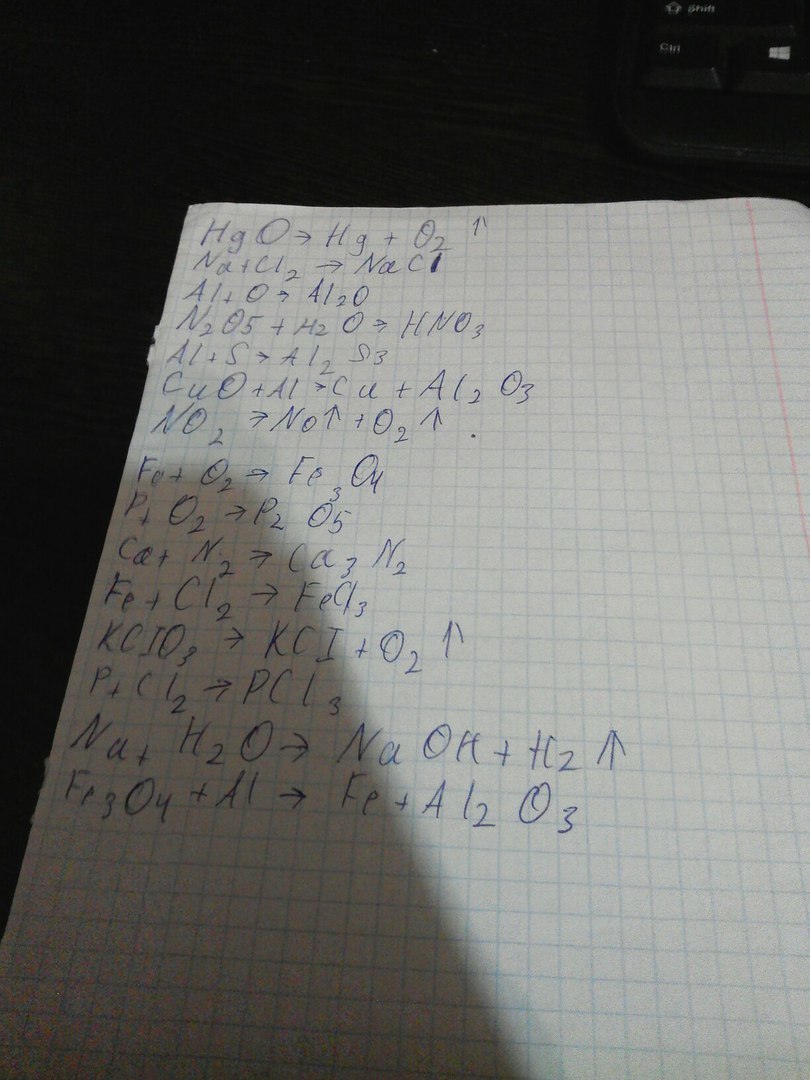 Shift
Ctrl
HgO → Hg + O₂ ↑
Na + Cl₂ → NaCl
Al + O → Al₂O
N₂O5 + H₂O → HNO₃
Al + S → Al₂S3
CuO + Al → Cu + Al₂O₃
NO₂ → No↑ + O₂↑ .
Fe + O₂ → Fe₃O₄
P + O₂ → P₂O5
Ca + N₂ → Ca₃N₂
Fe + Cl₂ → FeCl₃
KClO₃ → KCl + O₂ ↑
P + Cl₂ → PCl₃
Na + H₂O → NaOH + H₂ ↑
Fe₃O₄ + Al → Fe + Al₂O₃